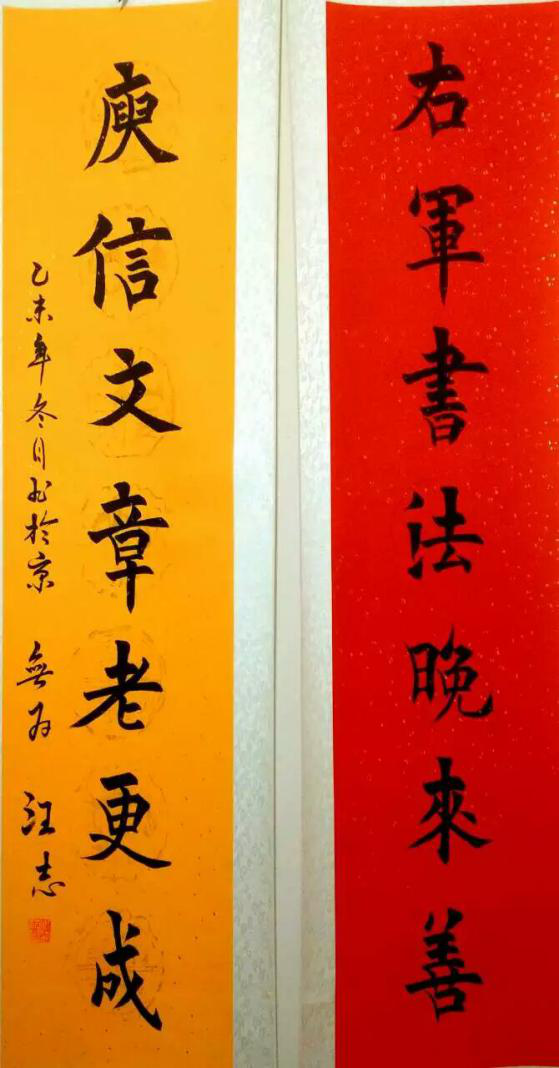 右軍書法晚來善
庾信文章老更成
乙未年冬月书於京 無为 汪志